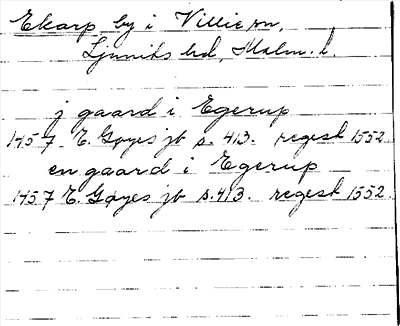 Ekarp by i Villie sn,
Ljunits hd, Malm. l.
j gaard i Egerup
1457 E. Gøyes jb s. 413. regest 1552.
en gaard i Egerup
1457 E. Gøyes jb s. 413. regest 1552.